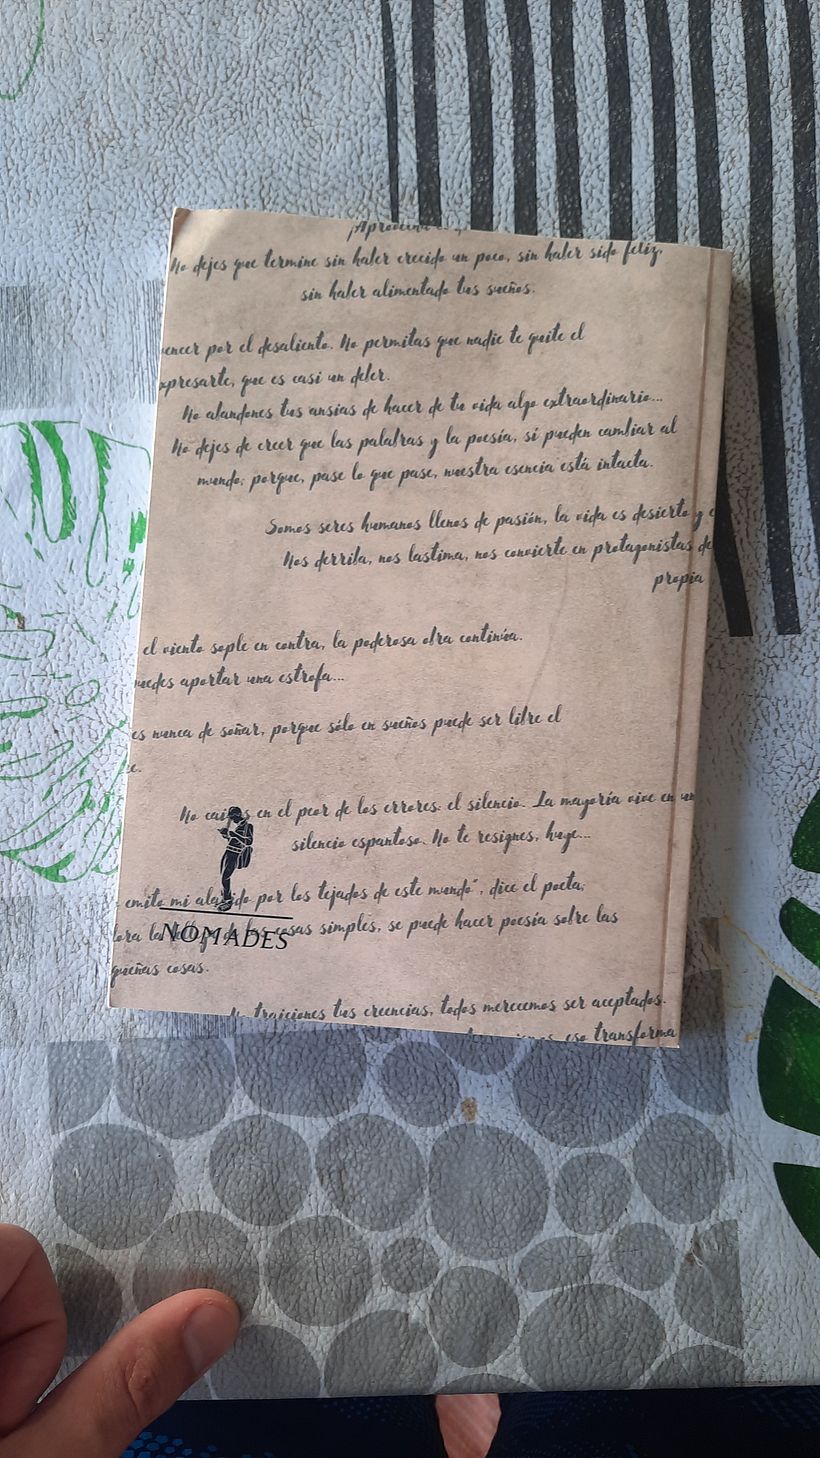 ¡Aprovecha
No dejes que termine sin haber crecido un poco, sin haber sido feliz,
sin haber alimentado tus sueños.
vencer por el desaliento. No permitas que nadie te quite el
xpresarte, que es casi un deber.
No abandones tus ansias de hacer de tu vida algo extraordinario...
No dejes de creer que las palabras y la poesía, sí pueden cambiar al
mundo; porque, pase lo que pase, nuestra esencia está intacta.
Somos seres humanos llenos de pasión, la vida es desierto y
Nos derriba, nos lastima, nos convierte en protagonistas de
propia
el viento sople en contra, la poderosa obra continúa.
uedes aportar una estrofa...
es nunca de soñar, porque sólo en sueños puede ser libre el
e.
No caigas en el peor de los errores: el silencio. La mayoría vive en un
silencio espantoso. No te resignes, huye...
emito mi alarido por los tejados de este mundo", dice el poeta;
ora la de las cosas simples, se puede hacer poesía sobre las
NÓMADES
queñas cosas.
No traiciones tus creencias, todos merecemos ser aceptados.
eso transforma